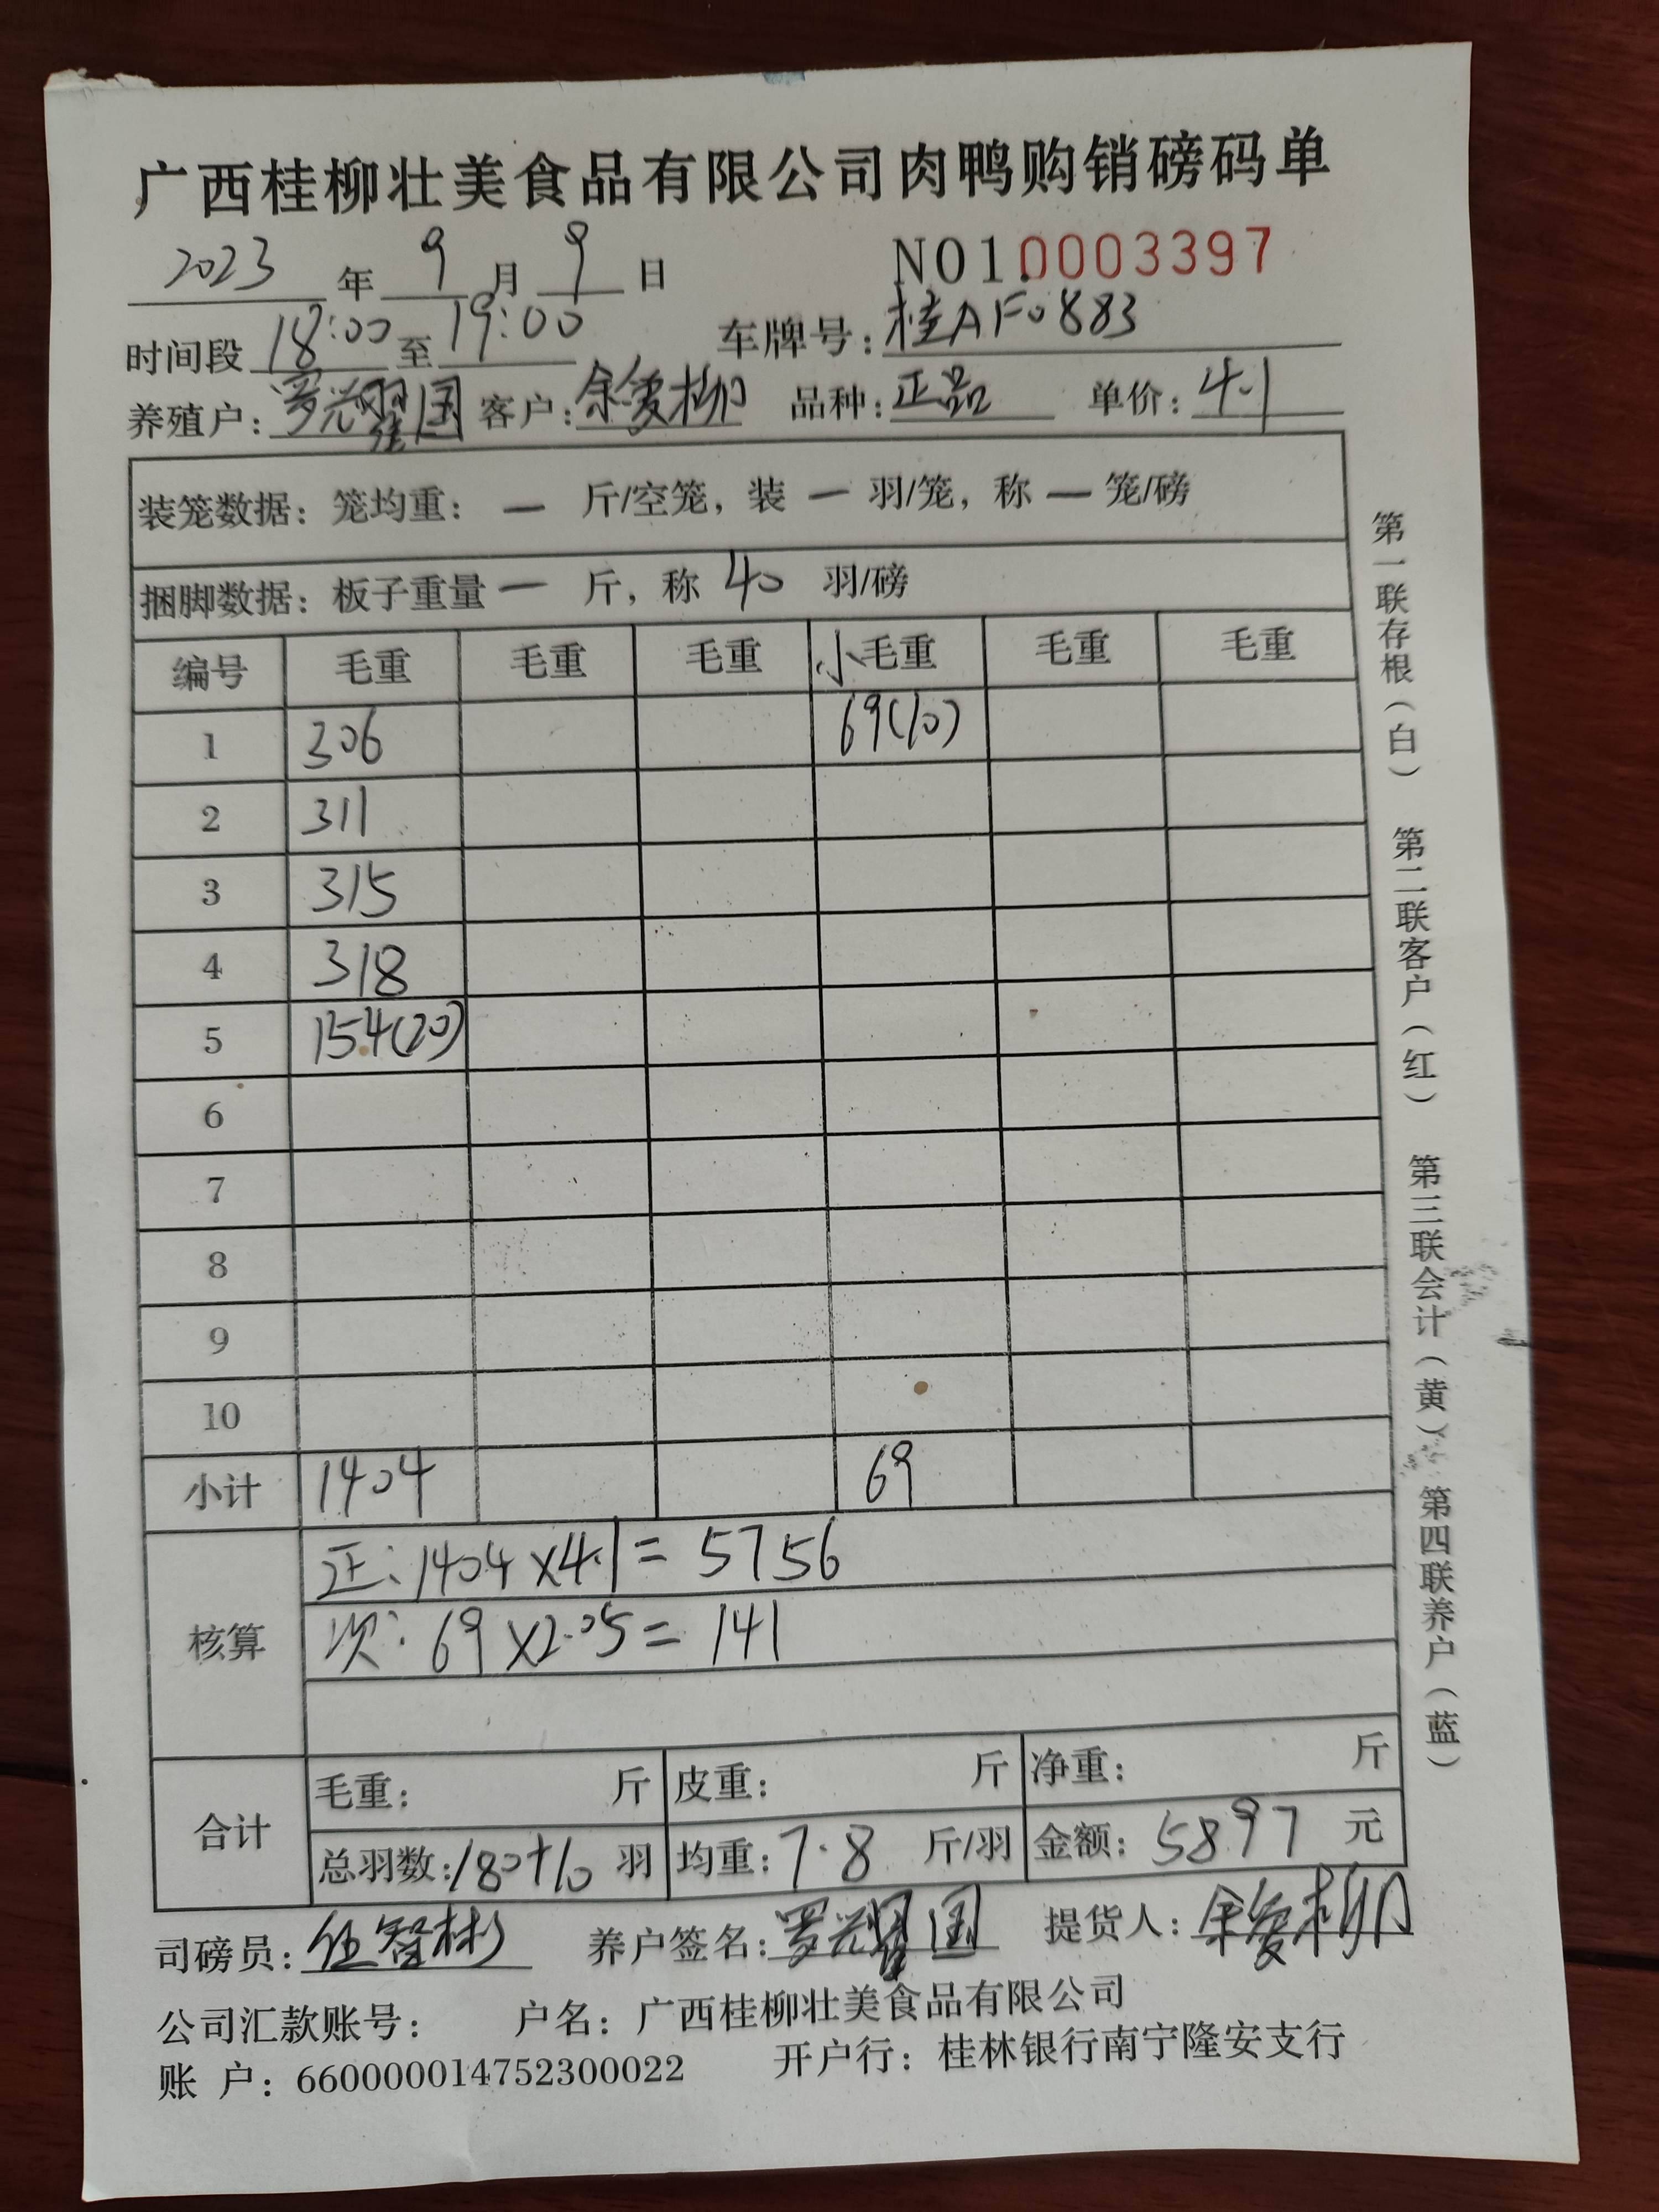 广西桂柳壮美食品有限公司肉鸭购销磅码单
2023 年 9 月 9 日 NO1.0003397
时间段 18:00 至 19:00 车牌号: 桂AF0883
养殖户: 罗 国 客户: 余爱柳 品种: 正品 单价: 4.1
装笼数据: 笼均重: — 斤/空笼, 装 — 羽/笼, 称 — 笼/磅
捆脚数据: 板子重量 — 斤, 称 40 羽/磅
编号 毛重 毛重 毛重 小毛重 毛重 毛重
1 306 69(10)
2 311
3 315
4 318
5 154(20)
6
7
8
9
10
小计 1404 69
核算 正: 1404×4.1=5756
次: 69×2.05=141
合计 毛重: 斤 皮重: 斤 净重: 斤
总羽数: 180+10 羽 均重: 7.8 斤/羽 金额: 5897 元
司磅员: 伍智彬 养户签名: 罗 国 提货人: 余爱柳
公司汇款账号: 户名: 广西桂柳壮美食品有限公司
账 户: 660000014752300022 开户行: 桂林银行南宁隆安支行
第一联存根(白) 第二联客户(红) 第三联会计(黄) 第四联养户(蓝)